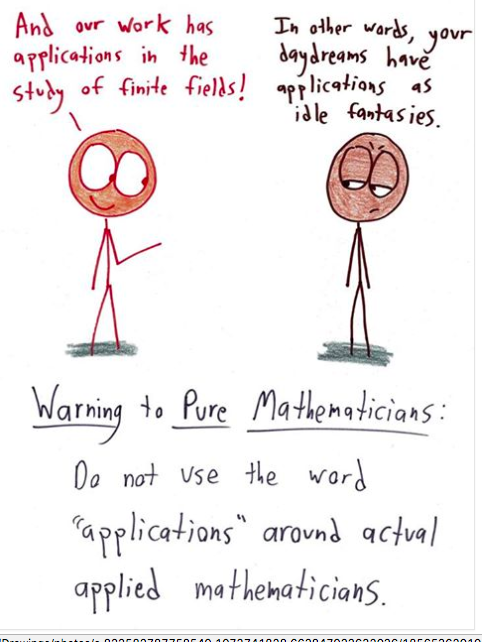 And our work has
applications in the
study of finite fields!
In other words, your
daydreams have
applications as
idle fantasies.
Warning to Pure Mathematicians:
Do not use the word
"applications" around actual
applied mathematicians.